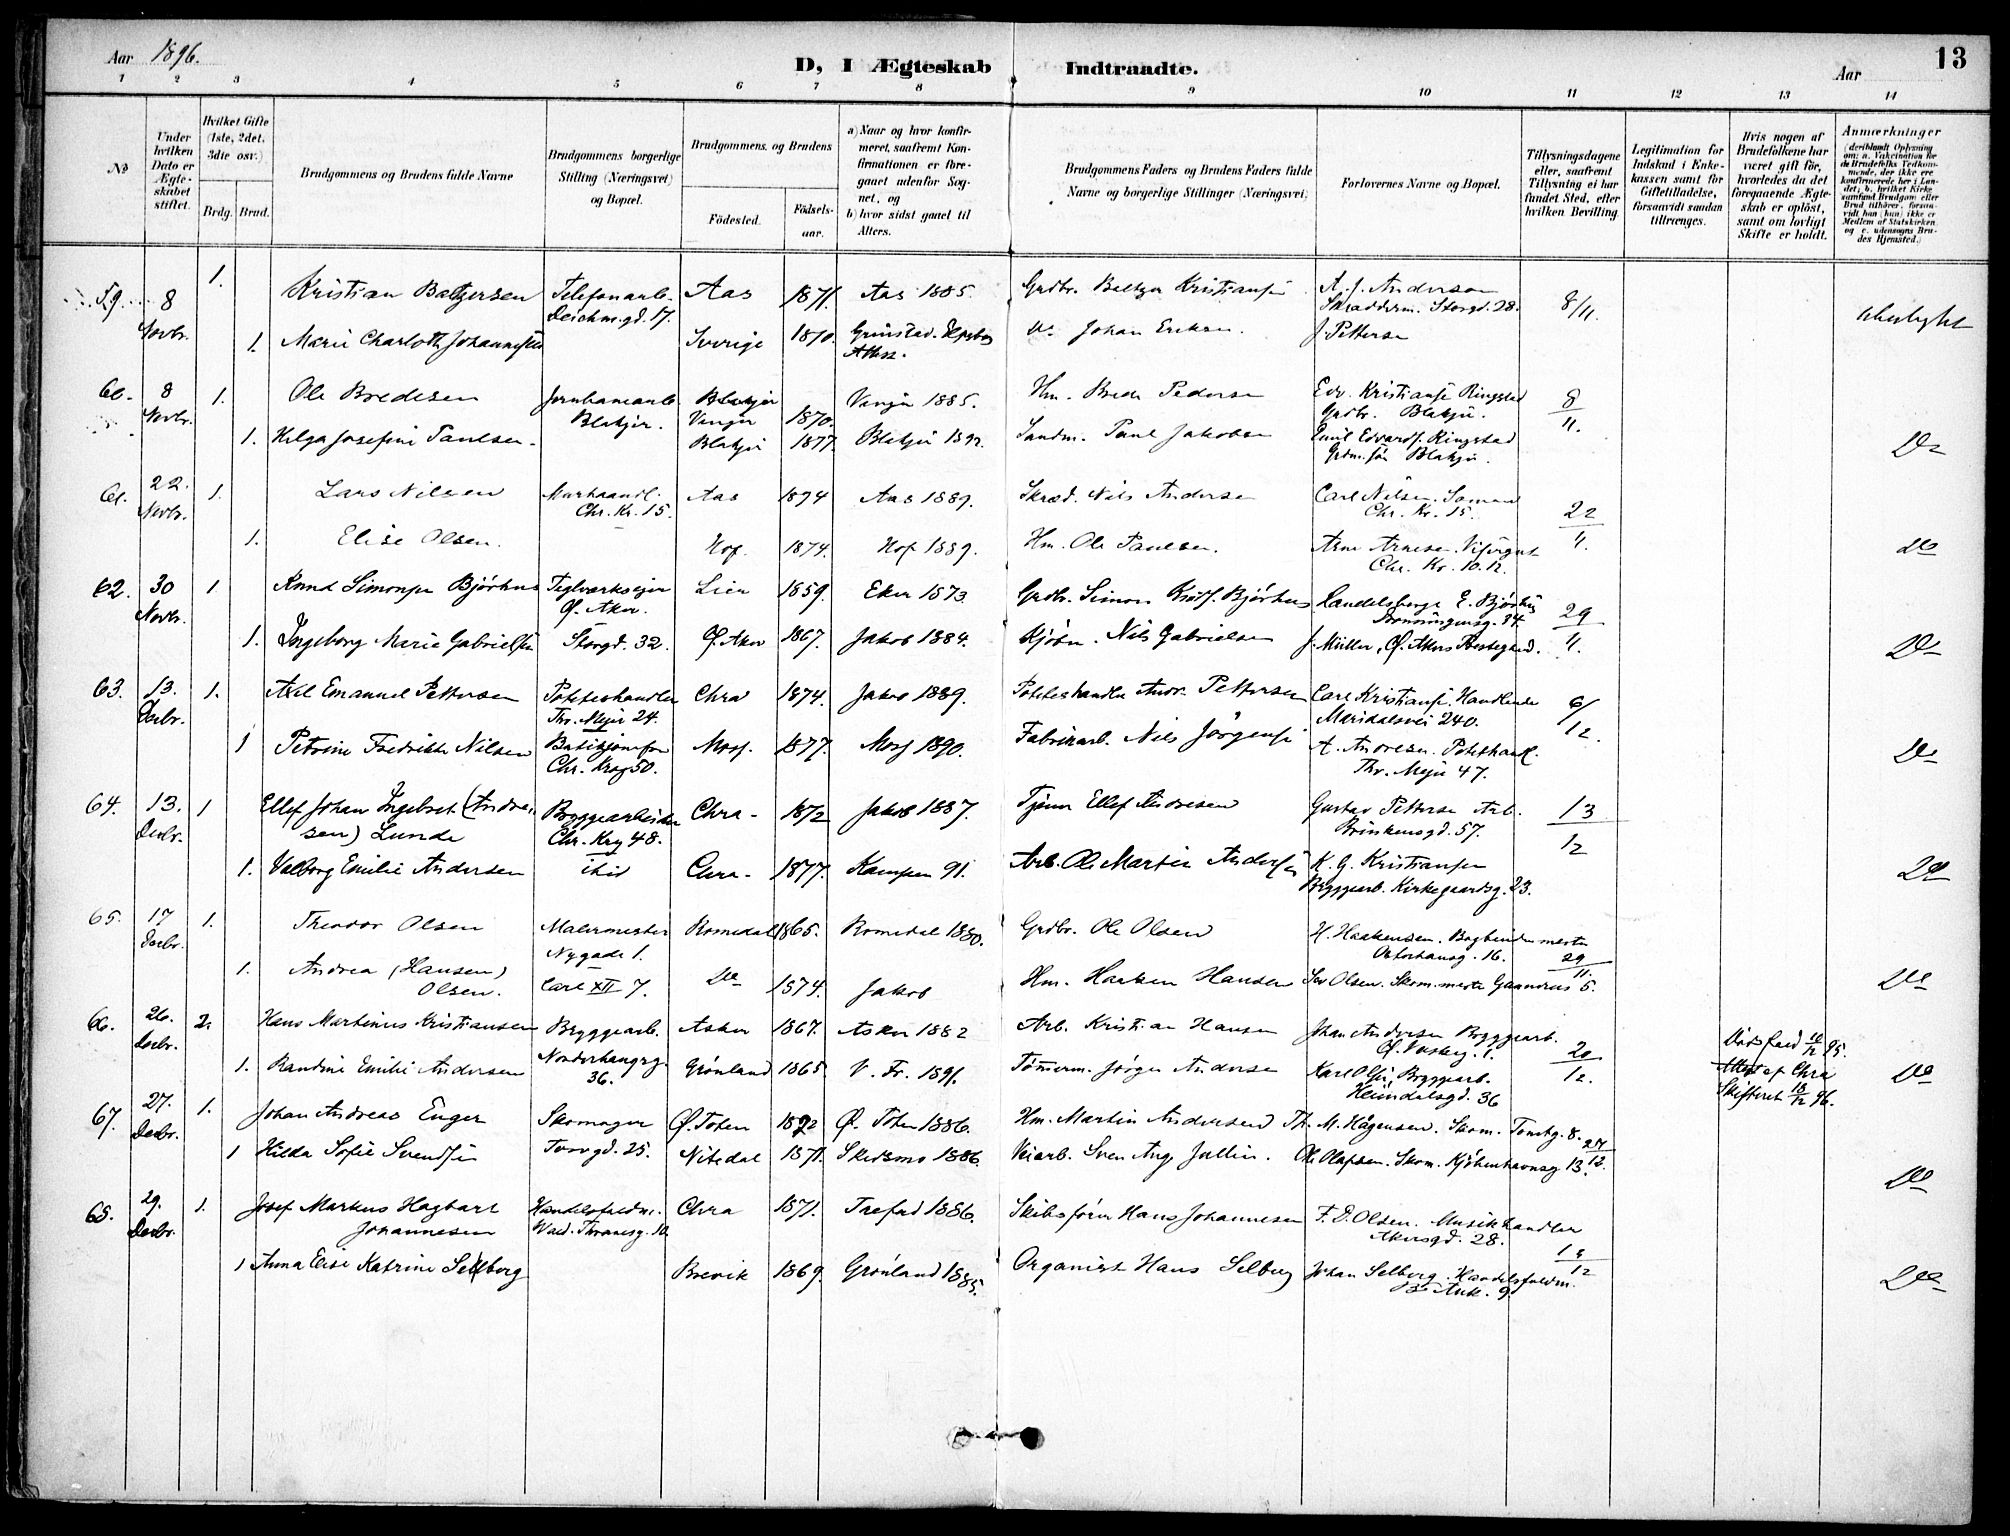 Aar 1896.
D, I Ægteskab Indtraadte.
13
Aar
1 2 3 4 5 6 7 8 9 10 11 12 13 14
No
Under hvilken Dato er Ægteskabet stiftet.
Hvilket Gifte (1ste, 2det, 3die osv.)
Brdg. Brud.
Brudgommens og Brudens fulde Navne
Brudgommens borgerlige Stilling (Næringsvei) og Bopæl.
Brudgommens og Brudens
Fødested.
Fødselsaar.
a) Naar og hvor konfirmeret, saafremt Konfirmationen er foregaaet udenfor Sognet, og
b) hvor sidst gaaet til Alters.
Brudgommens Faders og Brudens Faders fulde Navne og borgerlige Stillinger (Næringsvei)
Forlovernes Navne og Bopæl.
Tillysningsdagene eller, saafremt Tillysning ei har fundet Sted, efter hvilken Bevilling.
Legitimation for Indskud i Enkekassen samt for Giftetilladelse, forsaavidt saadan tiltrænges.
Hvis nogen af Brudefolkene har været gift før, hvorledes da det foregaaende Ægteskab er opløst, samt om lovligt Skifte er holdt.
Anmærkninger (deriblandt Oplysning om: a. Vakcination for de Brudefolks Vedkommende, der ikke ere konfirmerede her i Landet; b. hvilket Kirkesamfund Brudgom eller Brud tilhører, forsaavidt han (hun) ikke er Medlem af Statskirken, og c. udensogns Brudes Hjemsted.)
59. 8 1. Kristian Baltzersen Telefonarb. Aas 1871. Aas 1885. Grdbr. Baltzer Kristiansen A. J. Andersen 8/11.
Novbr. Deichm.gd. 17. Skræddrm. Storgd. 28.
1. Marie Charlotte Johannesen Sverige 1870. Grimstad. Do Johan Eriksen. J. Petterse
Attest.
60. 8 1. Ole Bredesen Jernbanearb. Blakjer Venjer 1885. Hm. Brede Pedersen Edv. Kristianse Ringstad 8
Novbr. Blakjer. Venjer 1870. Grdbr. Blakjer. 11.
1. Helga Josefine Paulsen. Blakjer 1877. Blakjer 1892. Sandm. Paul Jakobsen Emil Edvards. Ringstad Do
Grdm.søn Blakjer.
61. 22. 1. Lars Nilsen Murhaandl. Aas 1874 Aas 1889. Skræd. Nils Andersen Carl Nilsen. Sømand
Novbr. Chr. Kr. 15. Chr. Kr. 15. 22
1. Elise Olsen. Hof. 1874. Hof 1889. Hm. Ole Paulsen. Arne Arnesen. 11. Do
Chr. Kr. 10.12.
62. 30 1 Knud Simonsen Bjørhus Teglværkseier Lier 1859. Eker 1873 Grdbr. Simon Bjørhus Handelsborger E. Bjørhus
Novbr. Ø. Aker. Dronningensg. 34. 29
1. Ingeborg Marie Gabrielsen Storgd. 32. Ø. Aker 1867. Jakob 1884. Kjøbm. Nils Gabrielsen J. Müller, Ø. Akers Prestegaard. 11. Do
63. 13. 1. Axel Emanuel Pettersen Poteteshandler Chra 1874. Jakob 1889. Poteteshandler Andr. Pettersen Carl Kristianse. Handlende 6/
Decbr. Thv. Meyer 24. Maridalsvei 240. 12.
1 Petrine Fredrikke Nilsen Butikjomfru Moss. 1877. Moss 1890. Fabrikarb. Nils Jörgense A. Andresen. Potethandl. Do
Chr. Krog 50. Thv. Meyer 47.
64. 13. 1 Ellef Johan Ingebret (Andre- Bryggearbeider Chra- 1872 Jakob 1887. Tjener Ellef Andresen Gustav Petterse Arb. 13
Decbr. sen) Lunde Chr. Krog 48. Brinkensgd. 57. 12
1. Valborg Emilie Andersen ibid Chra- 1877. Kampen 91. Arb. Ole Martin Andersen K. G. Kristiansen Do
Bryggearb. Kirkegaardsg. 23.
65. 17 1. Theodor Olsen Malermester Romedal 1865. Romedal 1880. Grdbr. Ole Olsen H. Haakensen. Bogbindermester
Decbr. Nygade 1. 16. 29
1. Andrea (Hansen) Carl XII 7. Do 1874. Jakob Hm. Haaken Hansen Olsen. Skom.mester 5. 11. Do
Olsen.
66. 26. 2. Hans Martinus Kristiansen Bryggearb. Asker 1867. Asker 1882 Arb. Kristian Hansen Johan Andersen Bryggearb. Dødsfald 10/12 95.
Decbr. Nordrehougsg. Ø. 1. 20 Attest af Chra
1. Randine Emilie Andersen 36. Grønland 1865 V. Fr. 1891. Tømmerm. Jørgen Andersen Karl Olsen, Bryggearb. 12. Skifteret 18/12 96. Do
Heimdalsgd. 36
67. 27. 1. Johan Andreas Enger Skomager Ø. Toten 1872 Ø. Toten 1886. Hm. Martin Andersen Th. M. Hågensen. Skom. Tomtg. 8. 27
Decbr. 1 Hilda Sofie Svendsen Torvgd. 25. Nitedal 1871. Skedsmo 1886. Veiarb. Sven Aug. Jallin. Ole Olafsen. Skom. Kjøbenhavnsg. 13. 12. Do
68. 29. 1. Josef Markus Hagbart Handelsfuldm. Chra 1871. Trefod 1886. Skibsfører Hans Johannesen F. D. Olsen. Musikhandler
Decbr. Johannesen Wald. Thranesg. 10. Akersgd. 28. 19
1 Anna Elise Katrine Selberg Brevik 1869. Grønland 1885. Organist Hans Selberg Johan Selberg. Handelsfuldm. 12 Do